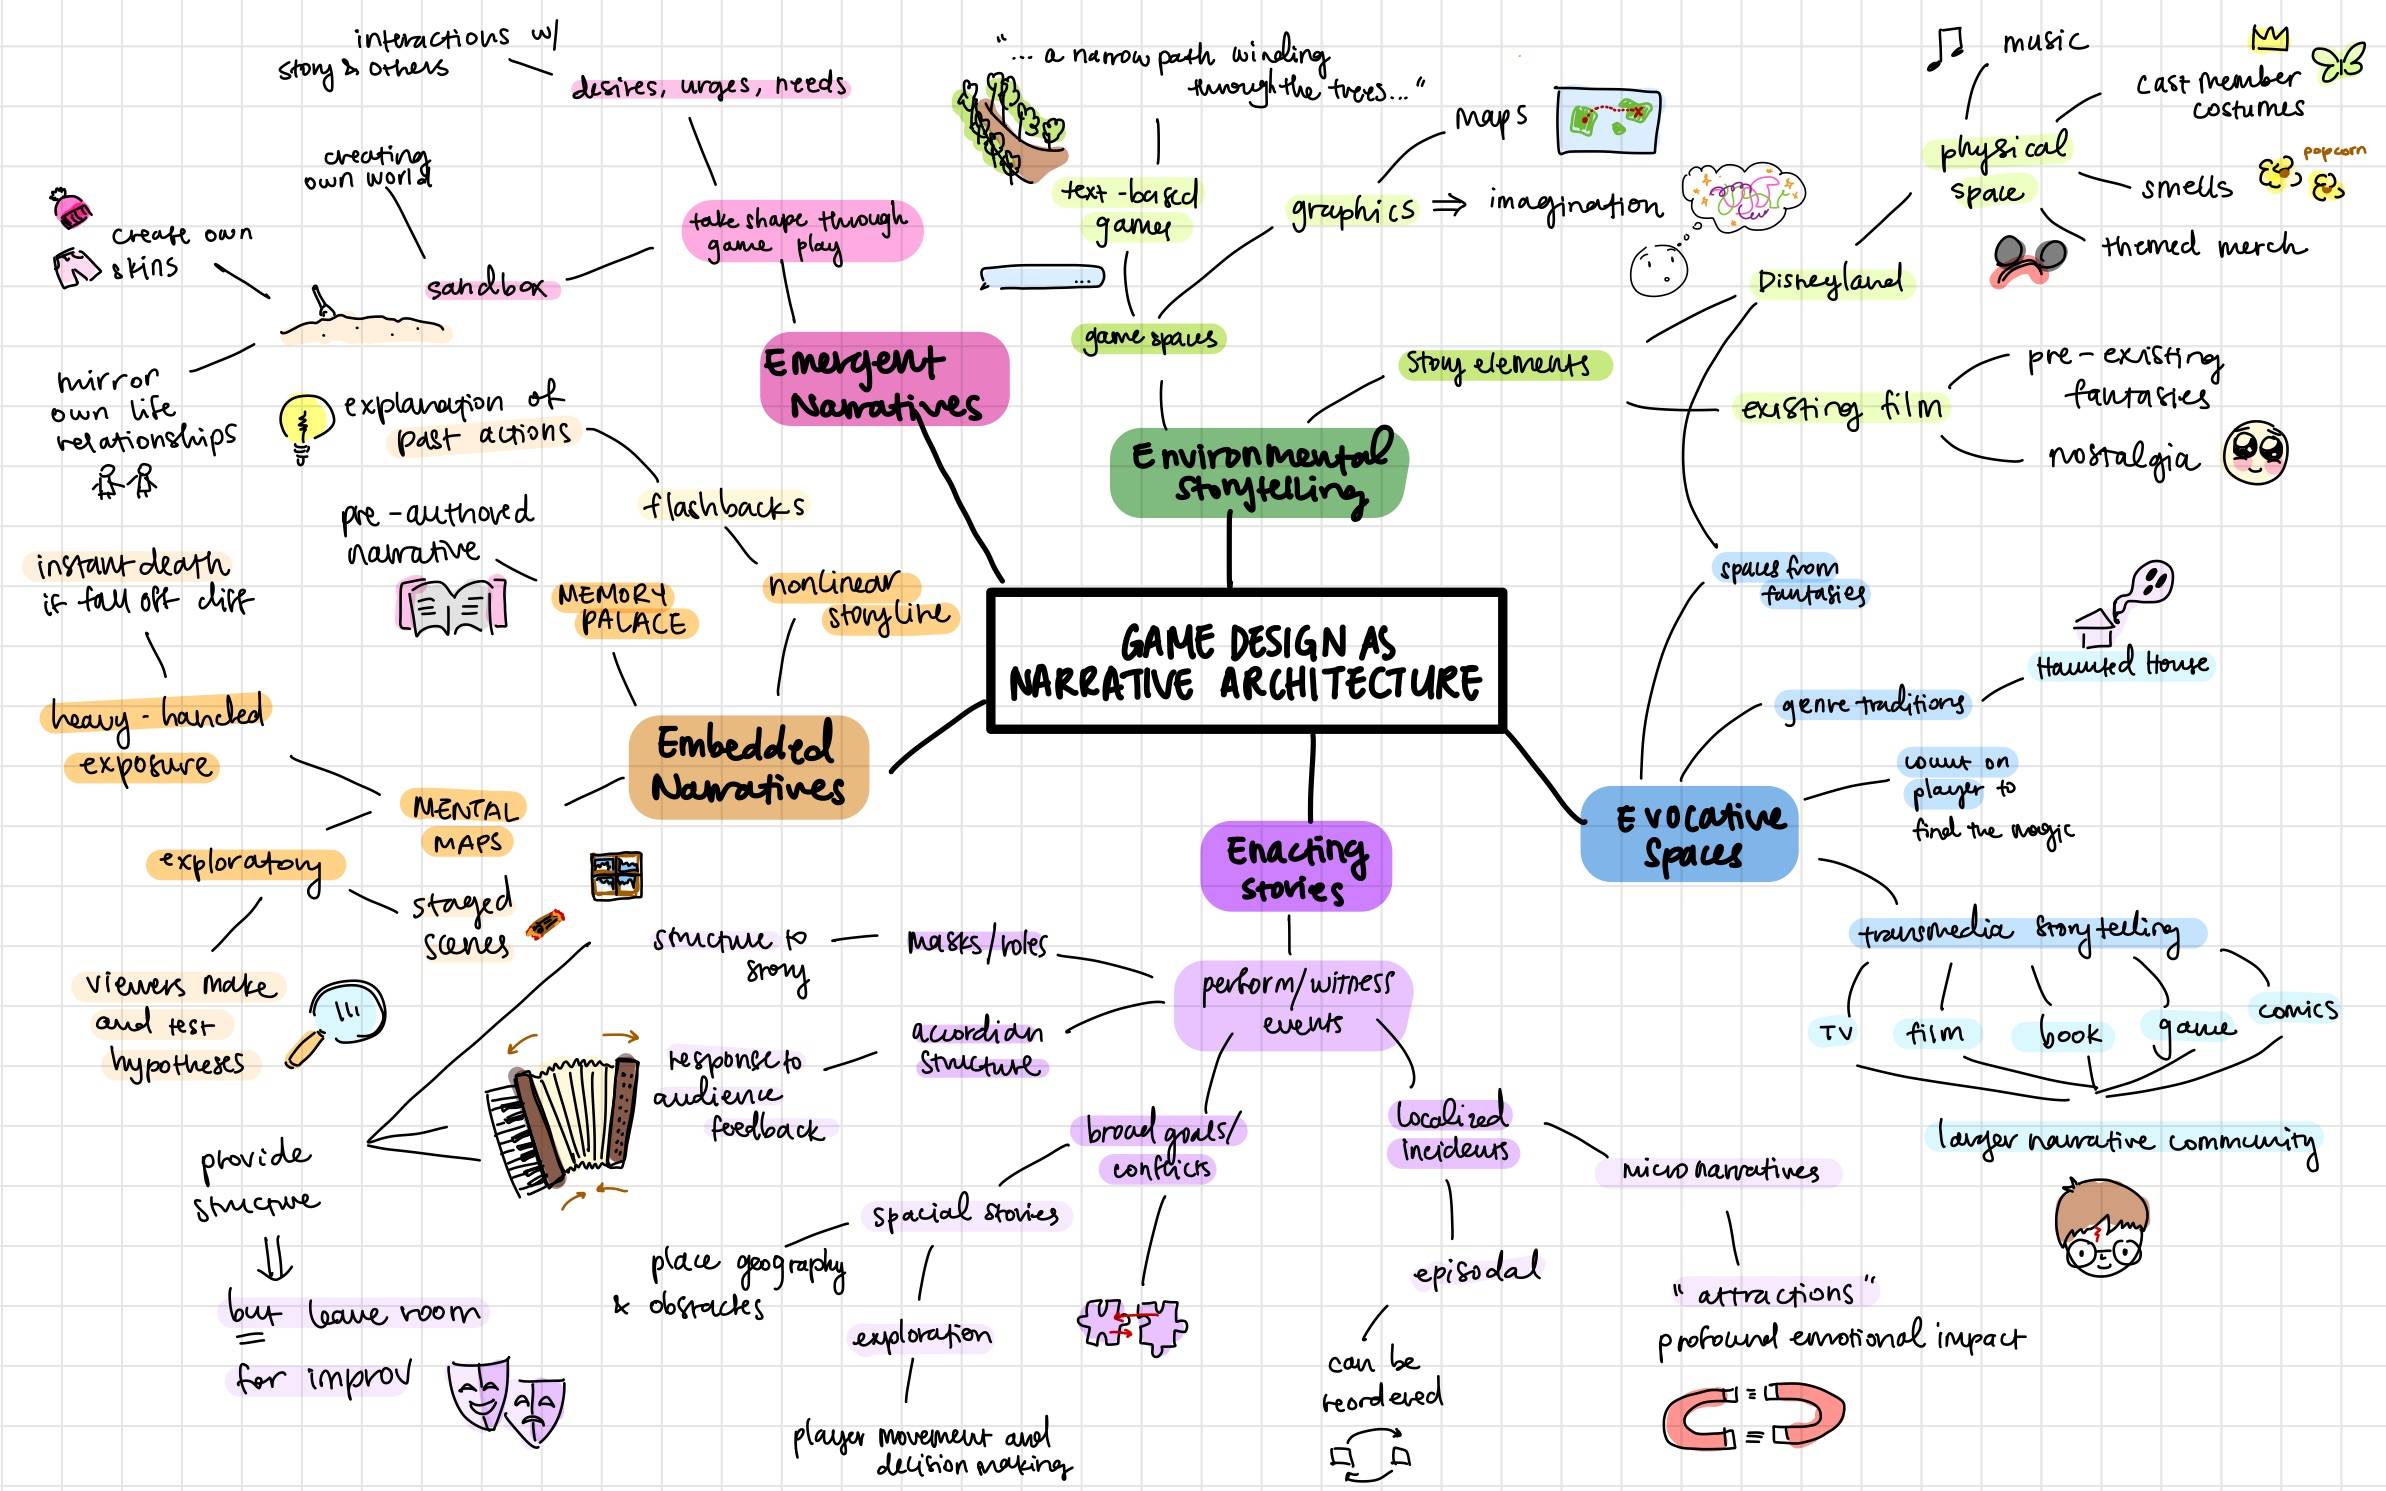 interactions w/
story & others
desires, urges, needs
creating
own world
take shape through
game play
create own
skins
sandbox
mirror
own life
relationships
Emergent
Narratives
"... a narrow path winding
through the trees..."
text-based
games
graphics ⇒ imagination
maps
game spaces
Story elements
Environmental
Storytelling
music
cast member
costumes
physical
space
popcorn
smells
themed merch
Disneyland
existing film
pre-existing
fantasies
nostalgia
explanation of
past actions
flashbacks
pre-authored
narrative
MEMORY
PALACE
nonlinear
storyline
instant death
if fall off cliff
heavy-handed
exposure
Embedded
Narratives
MENTAL
MAPS
exploratory
staged
scenes
viewers make
and test
hypotheses
GAME DESIGN AS
NARRATIVE ARCHITECTURE
spaces from
fantasies
Haunted House
genre traditions
count on
player to
find the magic
Evocative
Spaces
transmedia storytelling
TV
film
book
game
comics
larger narrative community
Enacting
Stories
perform/witness
events
masks/roles
structure to
story
accordian
structure
response to
audience
feedback
provide
structure
but leave room
for improv
broad goals/
conflicts
spacial stories
place geography
& obstacles
exploration
player movement and
decision making
localized
incidents
episodal
can be
reordered
micronarratives
"attractions"
profound emotional impact